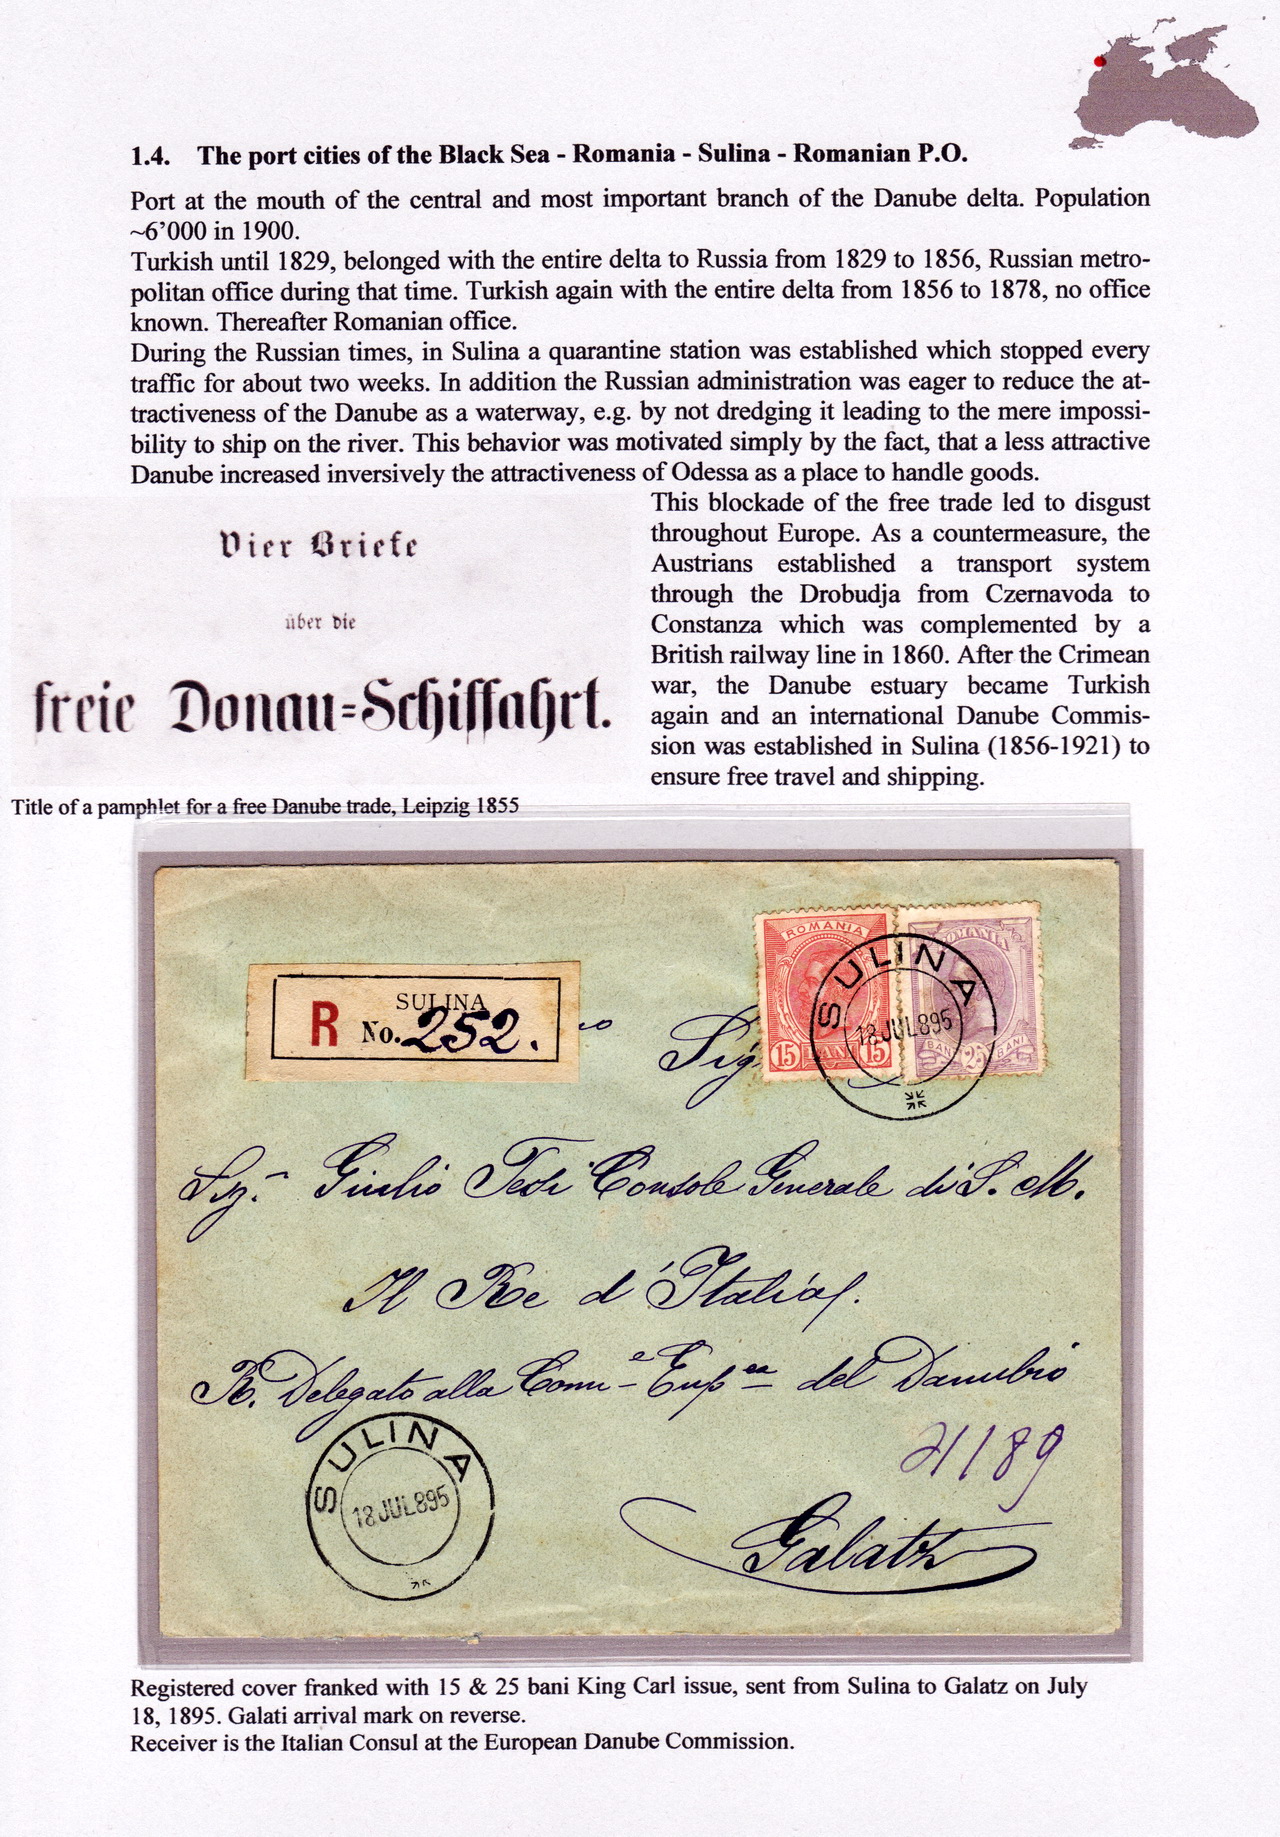 1.4. The port cities of the Black Sea - Romania - Sulina - Romanian P.O.
Port at the mouth of the central and most important branch of the Danube delta. Population
~6’000 in 1900.
Turkish until 1829, belonged with the entire delta to Russia from 1829 to 1856, Russian metro-
politan office during that time. Turkish again with the entire delta from 1856 to 1878, no office
known. Thereafter Romanian office.
During the Russian times, in Sulina a quarantine station was established which stopped every
traffic for about two weeks. In addition the Russian administration was eager to reduce the at-
tractiveness of the Danube as a waterway, e.g. by not dredging it leading to the mere impossi-
bility to ship on the river. This behavior was motivated simply by the fact, that a less attractive
Danube increased inversively the attractiveness of Odessa as a place to handle goods.
This blockade of the free trade led to disgust
throughout Europe. As a countermeasure, the
Austrians established a transport system
through the Drobudja from Czernavoda to
Constanza which was complemented by a
British railway line in 1860. After the Crimean
war, the Danube estuary became Turkish
again and an international Danube Commis-
sion was established in Sulina (1856-1921) to
ensure free travel and shipping.
Vier Briefe
über die
freie Donau=Schiffahrt.
Title of a pamphlet for a free Danube trade, Leipzig 1855
ROMANIA
15 BANI 15
ROMANIA
BANI 25 BANI
SULINA
18 JUL 895
SULINA
R No. 252.
Sig
Sig.r Giulio Tesi Console Generale di S. M.
Il Re d'Italia
R. Delegato alla Comm-e Eup.ea del Danubio
21189
SULINA
18 JUL 895
Galatz
Registered cover franked with 15 & 25 bani King Carl issue, sent from Sulina to Galatz on July
18, 1895. Galati arrival mark on reverse.
Receiver is the Italian Consul at the European Danube Commission.